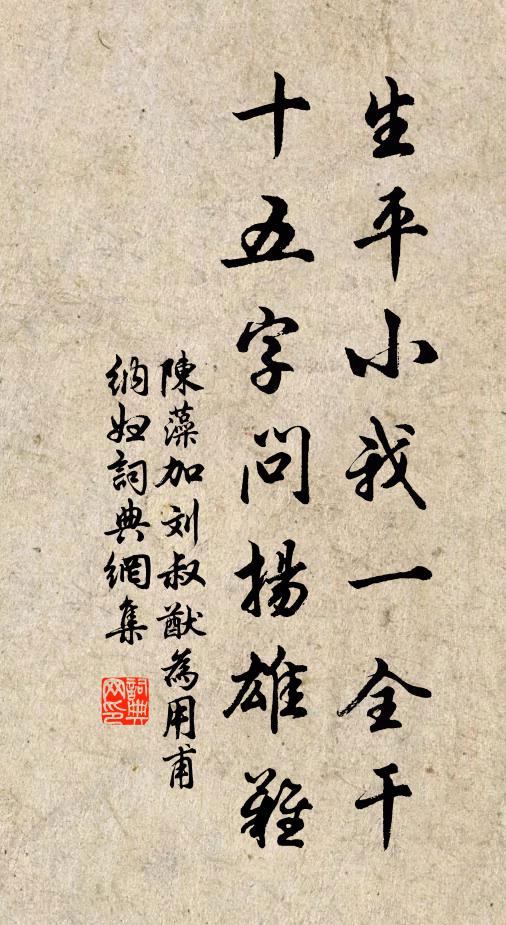 生平小我一全干
十五字問揚雄難
陳藻加刘叔猷為用甫
納婦詞典網集
詞典網印